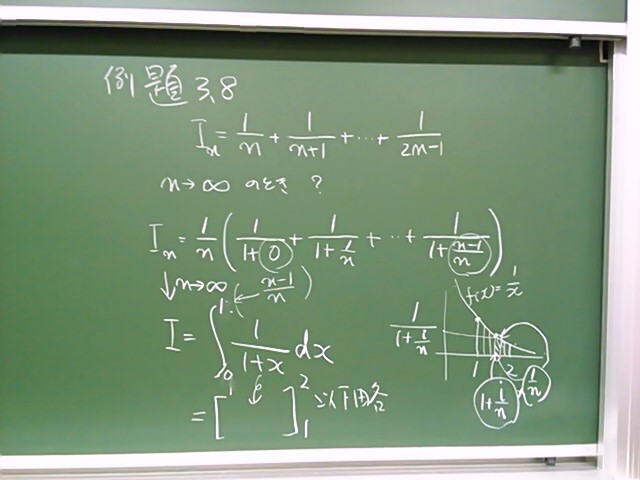 例題3.8
I_n = 1/n + 1/(n+1) + … + 1/(2n-1)
n→∞ のとき ?
I_n = 1/n ( 1/(1+0) + 1/(1+1/n) + … + 1/(1+(n-1)/n) )
↓n→∞ 1 (← (n-1)/n)
I = ∫_0^1 1/(1+x) dx
= [ ]_1^2 以下略
f(x) = 1/x
1/(1+i/n)
1 2
1+i/n 1/n